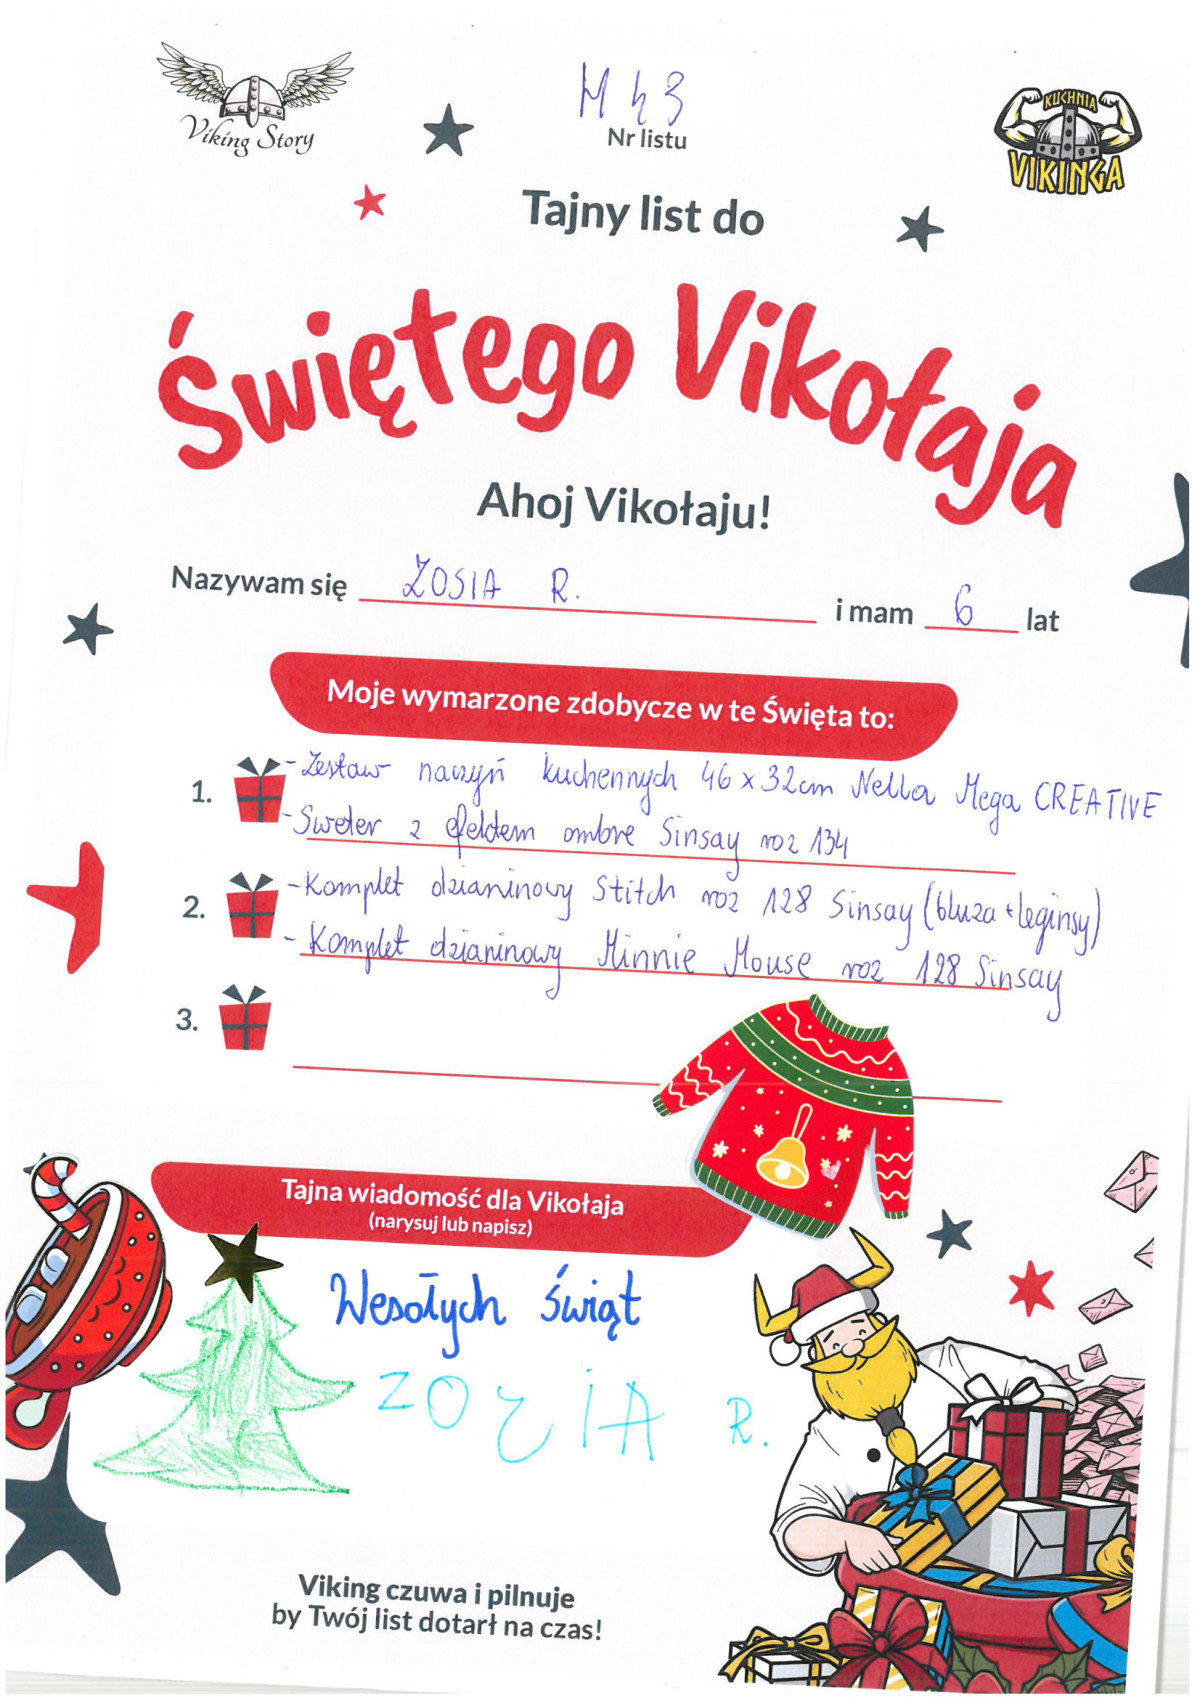 Viking Story
M43
Nr listu
KUCHNIA
VIKINGA
Tajny list do
Świętego Vikołaja
Ahoj Vikołaju!
Nazywam się ZOSIA R. i mam 6 lat
Moje wymarzone zdobycze w te Święta to:
1. - Zestaw naczyń kuchennych 46x32cm Nella Mega CREATIVE
- Sweter z efektem ombre Sinsay roz 134
2. - Komplet dzianinowy Stitch roz 128 Sinsay (bluza + leginsy)
- Komplet dzianinowy Minnie Mouse roz 128 Sinsay
3.
Tajna wiadomość dla Vikołaja
(narysuj lub napisz)
Wesołych Świąt
ZOSIA R.
Viking czuwa i pilnuje
by Twój list dotarł na czas!